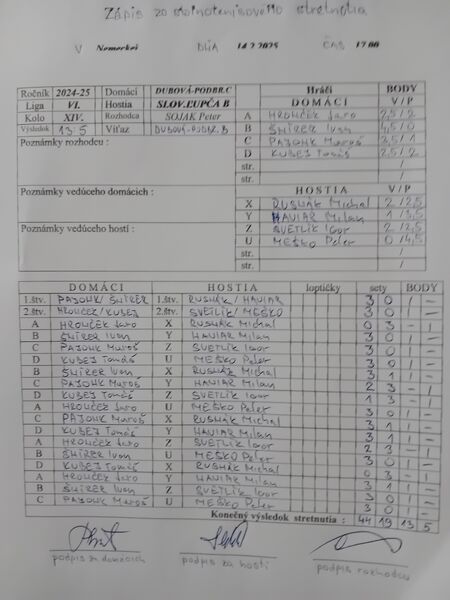 Zápis zo stolnotenisového stretnutia
V Nemeckej DŇA 14.2.2025 ČAS 17.00
Ročník 2024-25 Domáci DUBOVÁ-PODBR.C Hráči BODY
Liga VI. Hostia SLOV.ĽUPČA B DOMÁCI V/P
Kolo XIV. Rozhodca SOJAK Peter A HRONČEK Jaro 2,5/2
Výsledok 13 5 Víťaz DUBOVÁ-PODBR. B ŠNÍRER Ivan 4,5/0
Poznámky rozhodcu : C PAJONK Maroš 3,5/1
D KUBEJ Tomáš 2,5/2
str. /
str. /
Poznámky vedúceho domácich : HOSTIA V/P
X RUSNÁK Michal 2/2,5
Y HAVIAR Milan 1/3,5
Poznámky vedúceho hostí : Z SVETLÍK Igor 2/2,5
U MEŠKO Peter 0/4,5
str. /
str. /
DOMÁCI HOSTIA loptičky sety BODY
1.štv. PAJONK/ŠNÍRER 1.štv. RUSNÁK/HAVIAR 3 0 1 -
2.štv. HRONČEK/KUBEJ 2.štv. SVETLÍK/MEŠKO 3 0 1 -
A HRONČEK Jaro X RUSNÁK Michal 0 3 - 1
B ŠNÍRER Ivan Y HAVIAR Milan 3 0 1 -
C PAJONK Maroš Z SVETLÍK Igor 3 0 1 -
D KUBEJ Tomáš U MEŠKO Peter 3 0 1 -
B ŠNÍRER Ivan X RUSNÁK Michal 3 1 1 -
C PAJONK Maroš Y HAVIAR Milan 2 3 - 1
D KUBEJ Tomáš Z SVETLÍK Igor 1 3 - 1
A HRONČEK Jaro U MEŠKO Peter 3 0 1 -
C PAJONK Maroš X RUSNÁK Michal 3 0 1 -
D KUBEJ Tomáš Y HAVIAR Milan 3 1 1 -
A HRONČEK Jaro Z SVETLÍK Igor 2 3 - 1
B ŠNÍRER Ivan U MEŠKO Peter 3 0 1 -
D KUBEJ Tomáš X RUSNÁK Michal 0 3 - 1
A HRONČEK Jaro Y HAVIAR Milan 3 1 1 -
B ŠNÍRER Ivan Z SVETLÍK Igor 3 1 1 -
C PAJONK Maroš U MEŠKO Peter 3 0 1 -
Konečný výsledok stretnutia : 44 19 13 5
podpis za domácich podpis za hostí podpis rozhodcu